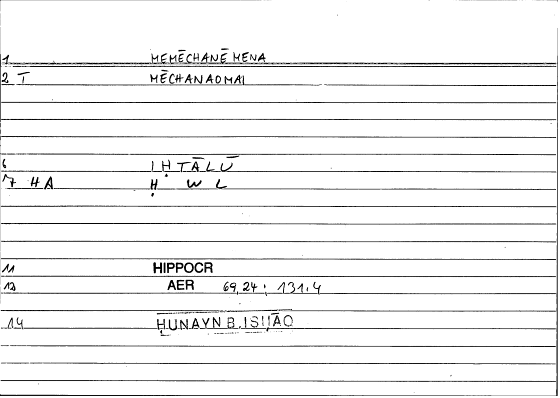 1 MEMĒCHANĒMENA
2 T MĒCHANAOMAI
6 IḤTĀLŪ
7 HA Ḥ W L
11 HIPPOCR
12 AER 69,24 : 131,4
14 ḤUNAYN B. ISḤĀQ